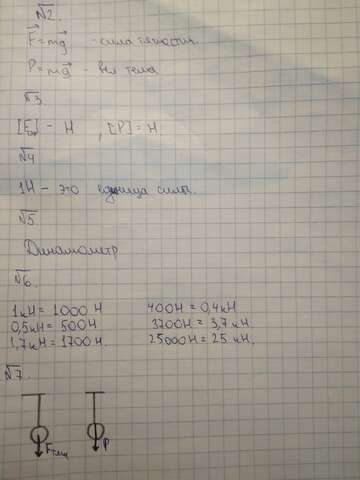 №2.
F⃗=mg⃗ - сила тяжести.
P=mg⃗ - вес тела
№3
[Fт] - Н , [P] = Н
№4
1Н - это единица силы.
№5
Динамометр
№6
1кН = 1000 Н 400Н = 0,4кН
0,5кН = 500Н 3700Н = 3,7 кН.
1,7кН = 1700 Н. 25000Н = 25 кН.
№7.
Fтяж P